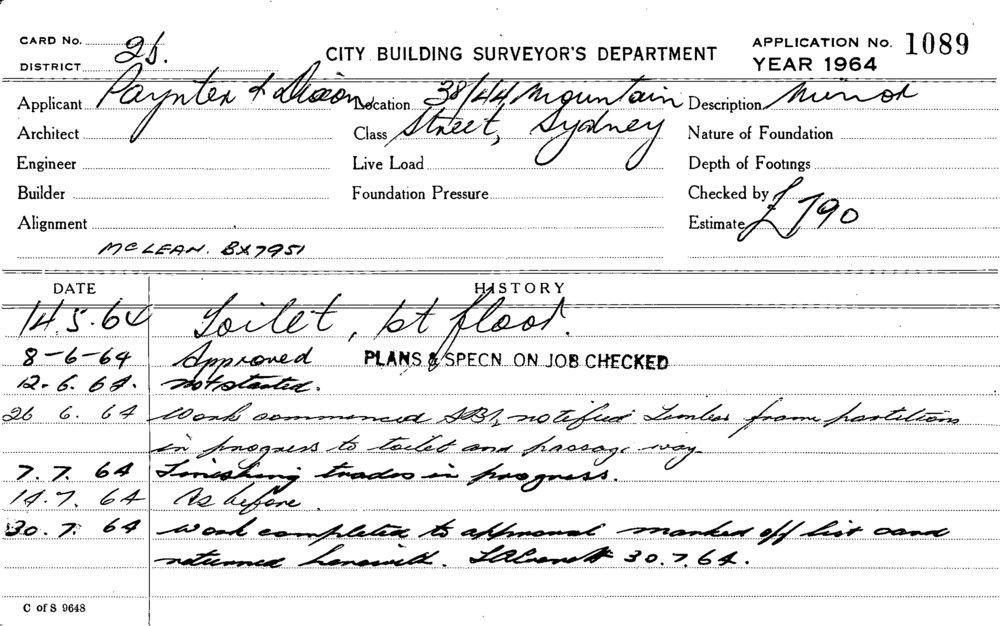 CARD No. 2b.
DISTRICT
CITY BUILDING SURVEYOR'S DEPARTMENT
APPLICATION No. 1089
YEAR 1964
Applicant Paynter & Dixon Location 38/44 Mountain Description Minor
Architect Class Street, Sydney Nature of Foundation
Engineer Live Load Depth of Footings
Builder Foundation Pressure Checked by
Alignment Estimate £790
McLEAN. BX7951
DATE HISTORY
14.5.64 Toilet, 1st floor.
8-6-64 Approved PLANS & SPECN ON JOB CHECKED
12.6.64. not started.
26 6.64 Work commenced notified Timber frame partitions
in progress to toilet and passage way
7.7.64 Finishing trades in progress.
14.7.64 As before.
30.7.64 Work completed to approval marked off list card
returned herewith. 30.7.64.
C of S 9648